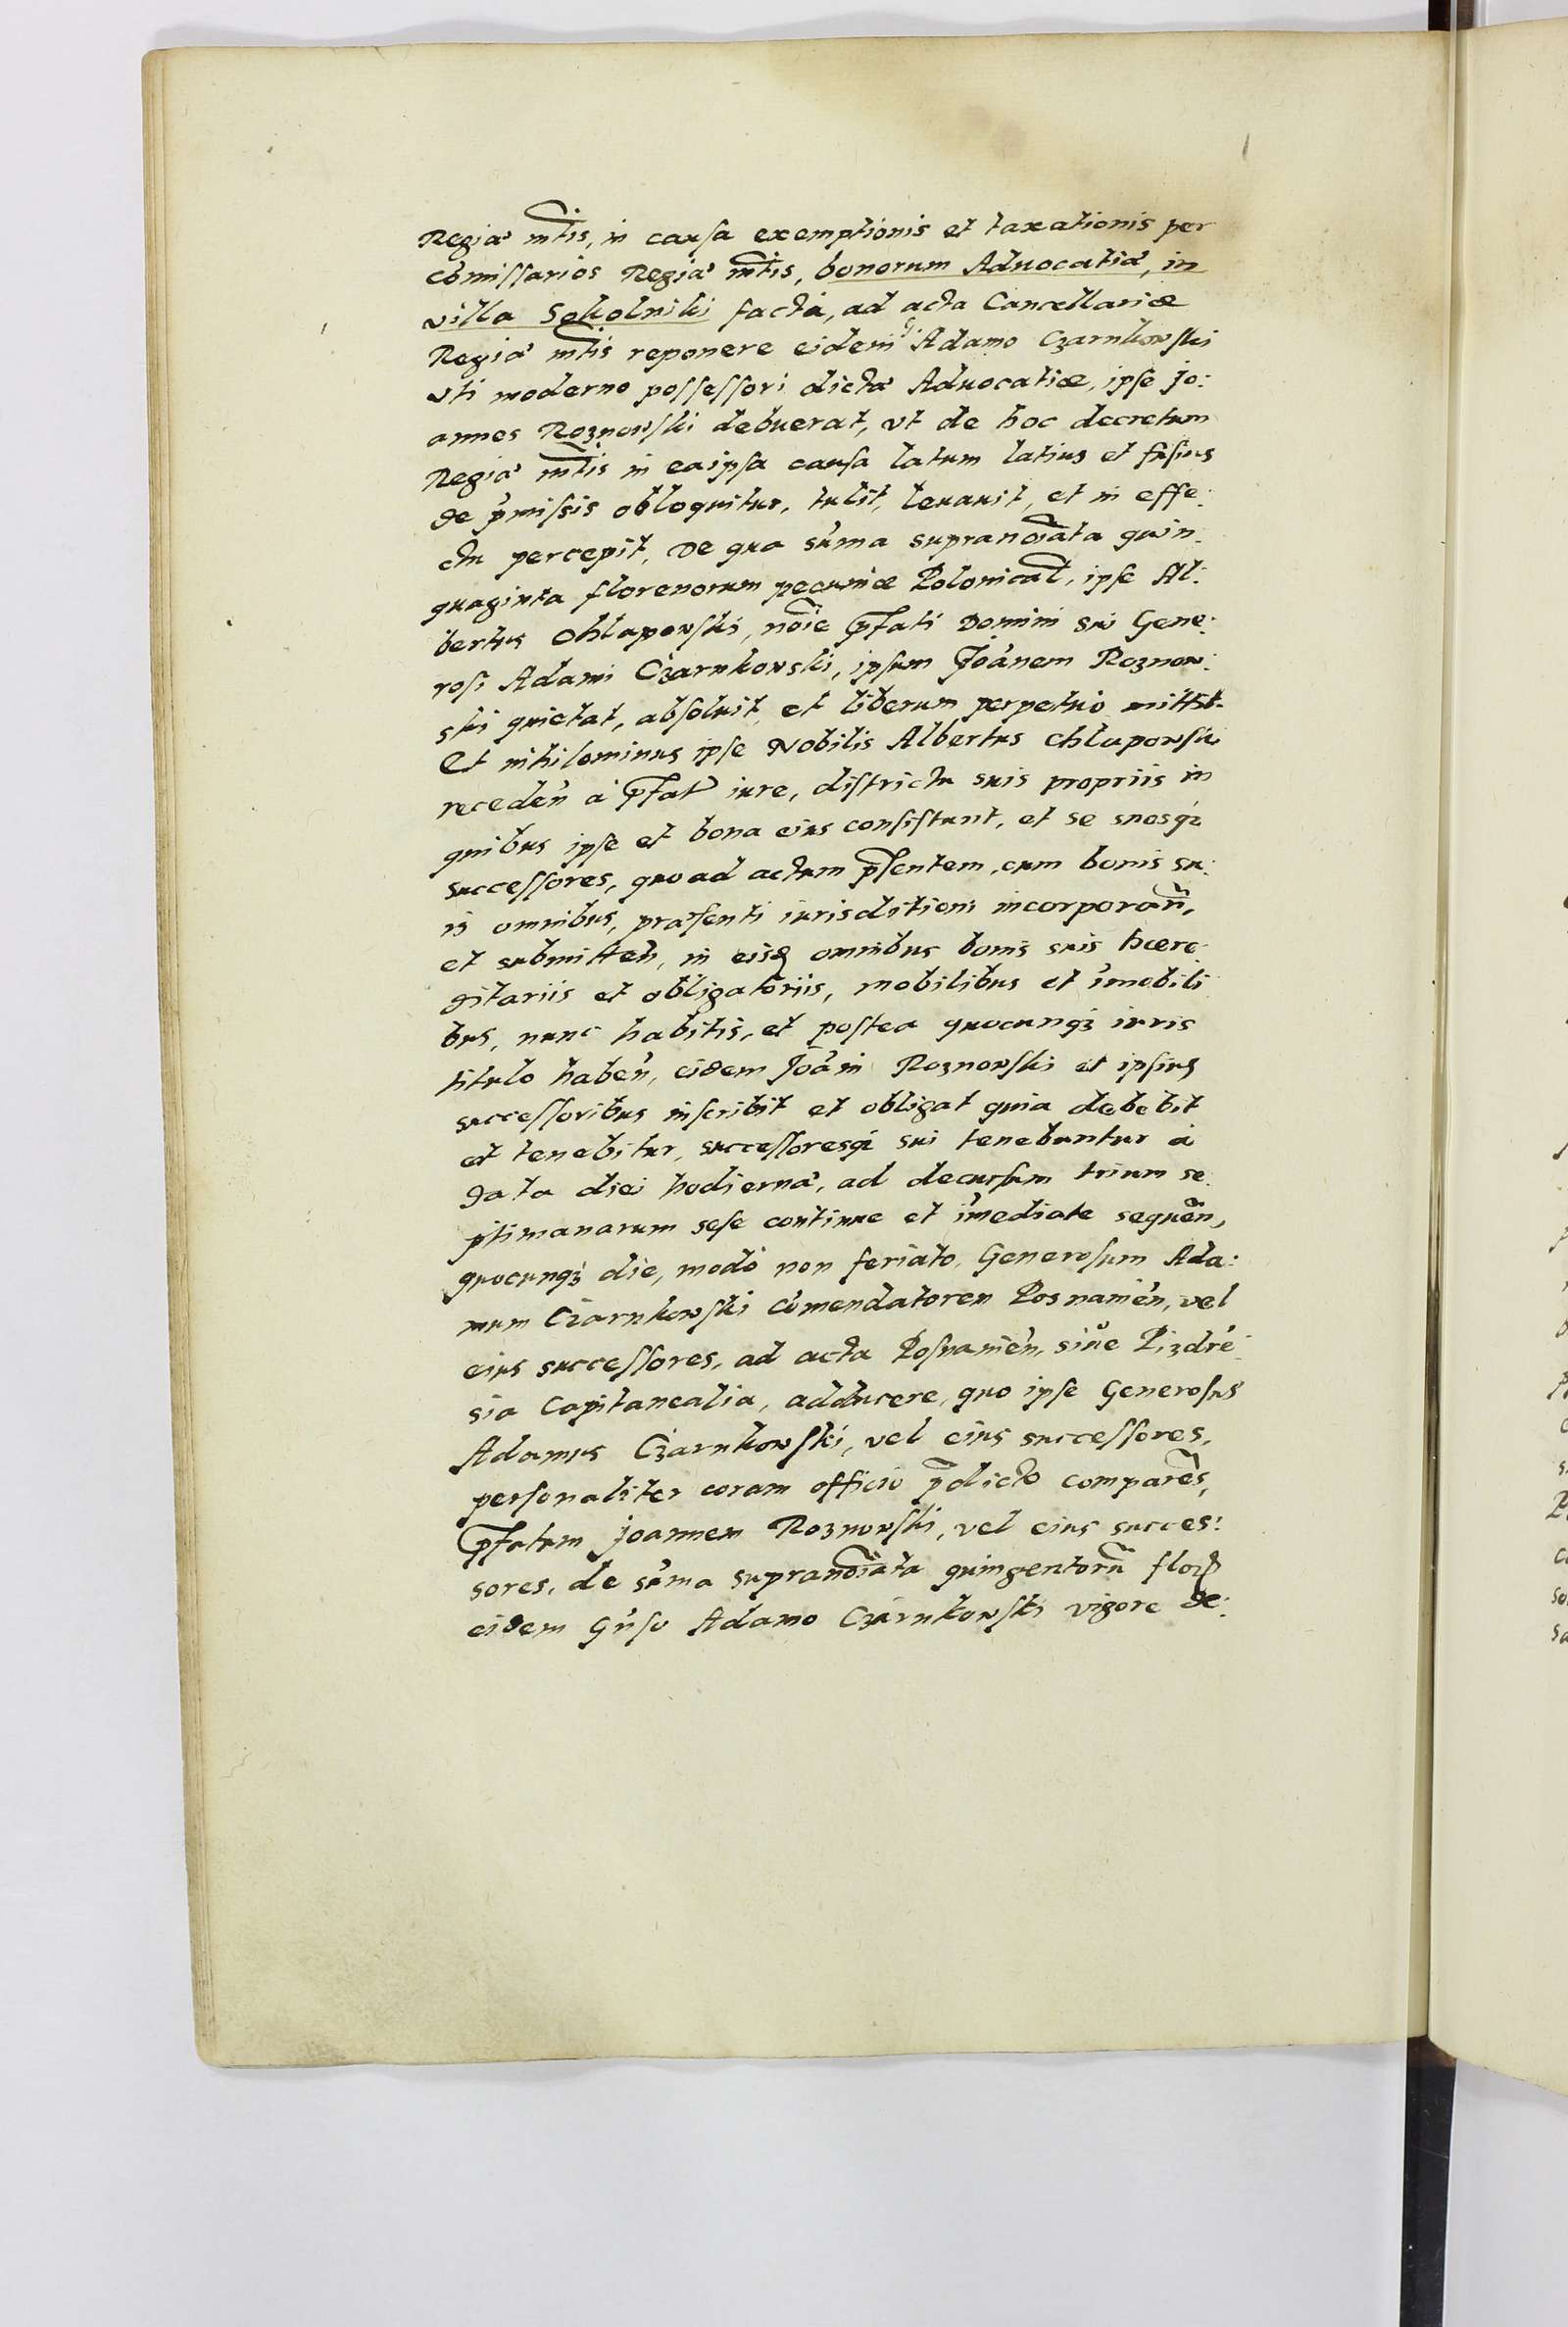 Regiæ mtis, in causa exemptionis et taxationis per
comissarios Regiæ mtis, bonorum Aduocatiæ, in
villa Sokolniki factæ, ad acta Cancellariæ
Regiæ mtis reponere eidem Adamo Czarnkowski
vti moderno possessori dictæ Aduocatiæ, ipse Jo:
annes Roznowski debuerat, vt de hoc decretum
Regiæ mtis in eaipsa causa latum latius et fusius
de pmissis obloquitur, tulit, leuauit, et in effe:
ctu percepit, De qua sum̃a supranoĩata quin:
quaginta florenorum pecuniæ Polonical, ipse Al:
bertus Chlapowski, noĩe pfati Domini sui Gene:
rosi Adami Czarnkowski, ipsum Joãnem Roznow:
ski quietat, absoluit et liberum perpetuo mittit.
Et nihilominus ipse Nobilis Albertus Chlapowski
receden̄ à pfat iure, districtu suis propriis in
quibus ipse et bona eius consistunt, et se suosqz
successores, quoad actum psentem, cum bonis su:
is omnibus, præsenti iurisditioni incorporan̄,
et submitten̄, in eisd omnibus bonis suis hære:
ditariis et obligatoriis, mobilibus et im̃obili
bus, nunc habitis, et postea quocunqz iuris
titulo haben̄, eidem Joãni Roznowski et ipsius
successoribus inscribit et obligat quia debebit
et tenebitur, successoresqz sui tenebuntur à
data diei hodiernæ, ad decursum trium se:
ptimanarum sese continue et im̃ediate sequen̄,
quocunqz die, modò non feriato, Generosum Ada:
mum Czarnkowski com̃endatorem Posnanien̄, vel
eius successores, ad acta Posnanien̄, siue Pizdre:
sia Capitanealia, adducere, quo ipse Generosus
Adamus Czarnkowski, vel eius successores,
personaliter coram officio pdicto comparen̄s,
pfatum Joannem Roznowski, vel eius succes:
sores, de sum̃a supranoĩata quingentorũ flor
eidem Gnso Adamo Czarnkowski vigore de: